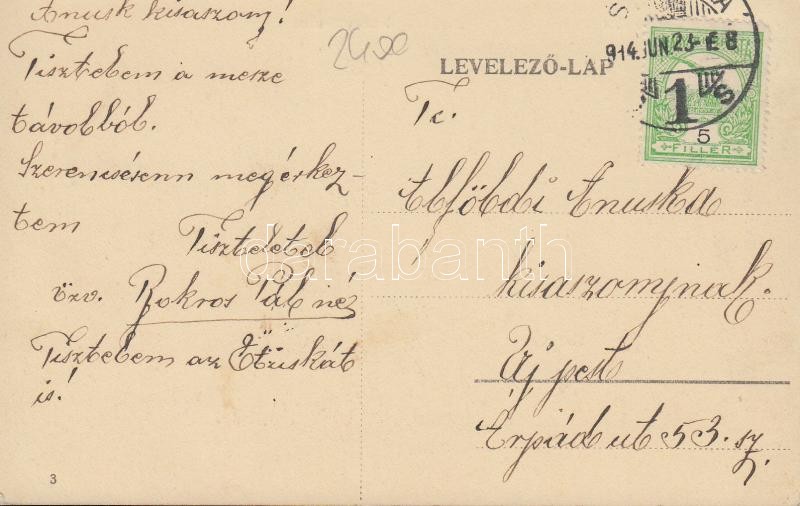 Anusk kisaszom!
Tisztelem a mesze
távolból.
Szerencsésenn megérkez-
tem
Tisztelettel
özv. Bokros Pál né
Tisztelem az Etuskát
is!
3
2400
LEVELEZŐ-LAP
914.JUN.23-E 8
1
5
FILLÉR
Tc.
Alföldi Anuska
kisaszonynak.
Ujpest
Árpád ut 53. sz.
darabanth.com